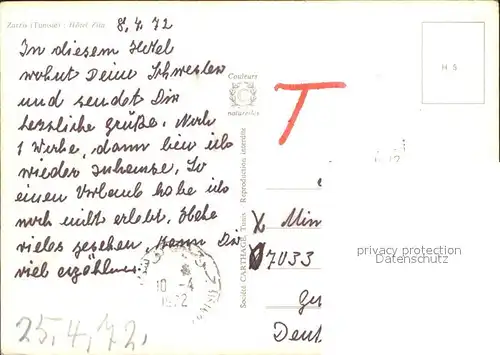 Zarzis (Tunisie) : Hôtel Zita
8.4.72
In diesem Hotel
wohnt Deine Schwester
und sendet Dir
herzliche Grüße. Noch
1 Woche, dann bin ich
wieder zuhause. So
einen Urlaub habe ich
noch nicht erlebt. Habe
vieles gesehen, kann Dir
viel erzählen.
25.4.72.
Couleurs
naturelles
Société CARTHAGE Tunis - Reproduction interdite
T
H S
10 -4
1972
X Min
7033
privacy protection
Datenschutz
Deut